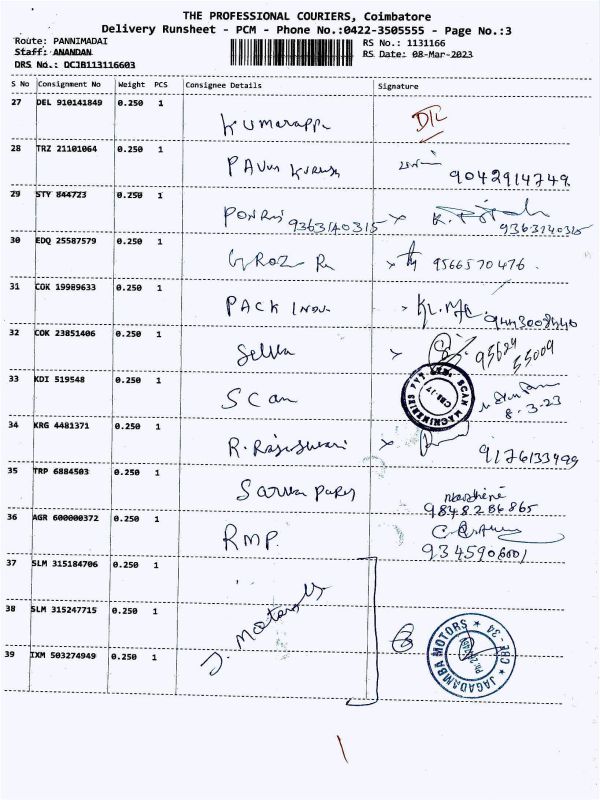 THE PROFESSIONAL COURIERS, Coimbatore
Delivery Runsheet - PCM - Phone No.:0422-3505555 - Page No.:3
Route: PANNIMADAI RS No.: 1131166
Staff: ANANDAN RS Date: 08-Mar-2023
DRS No.: DCJB113116603
S No Consignment No Weight PCS Consignee Details Signature
27 DEL 910141849 0.250 1
Kumarappa
28 TRZ 21101064 0.250 1
9042914749
29 STY 844723 0.250 1
9363140315 9363140315
30 EDQ 25587579 0.250 1
9566570476
31 COK 19989633 0.250 1
PACK
32 COK 23851406 0.250 1
Selva 95624 55009
33 KDI 519548 0.250 1
SCan 8.3.23
PVT. LTD. SCAN MACHINERIES CBE-17
34 KRG 4481371 0.250 1
R. Rajeswari
35 TRP 6884503 0.250 1
9848286865
36 AGR 600000372 0.250 1
RMP.
37 SLM 315184706 0.250 1
38 SLM 315247715 0.250 1
J. Motors
39 IXM 503274949 0.250 1
JAGADAMBA MOTORS CBE-34